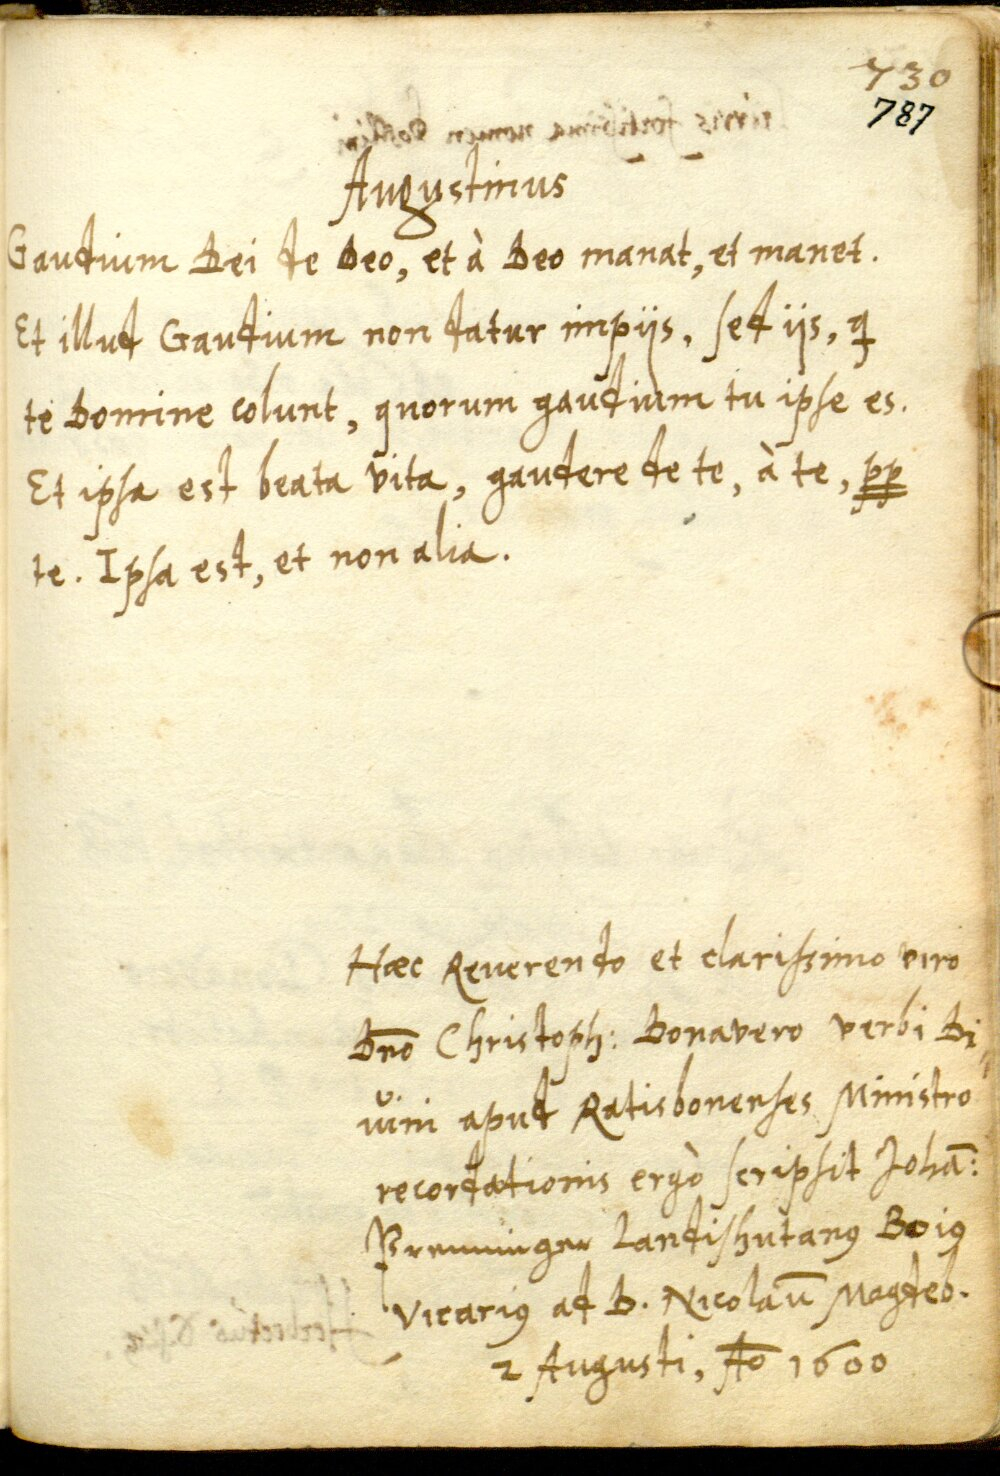 730
787
Augustinus
Gaudium Dei de Deo, et à Deo manat, et manet.
Et illud Gaudium non datur impijs, sed ijs, q
te Domine colunt, quorum gaudium tu ipse es.
Et ipsa est beata vita, gaudere de te, à te, pp
te. Ipsa est, et non alia.
Hæc Reuerendo et clarissimo viro
Dn̄o Christoph: Donavero verbi Di„
uini apud Ratisbonenses Ministro
recordationis ergò scripsit Johā:
Premminger Landishutang Boig
Vicarig ad D. Nicolaū Magdeb.
2 Augusti, Ao 1600